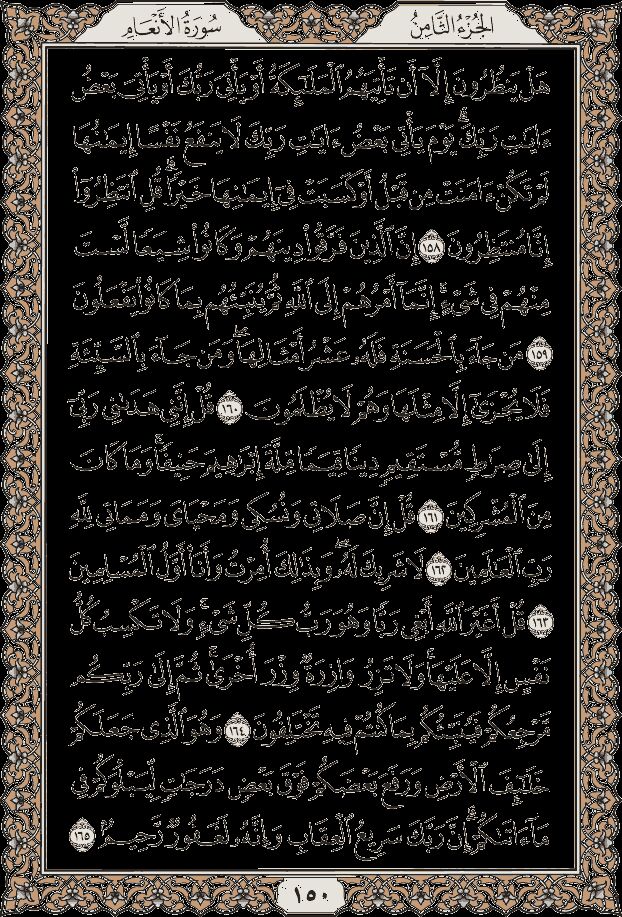 الجُزْءُ الثَّامِنُ
سُورَةُ الأَنْعَامِ
هَلْ يَنظُرُونَ إِلَّآ أَن تَأْتِيَهُمُ ٱلْمَلَٰٓئِكَةُ أَوْ يَأْتِىَ رَبُّكَ أَوْ يَأْتِىَ بَعْضُ
ءَايَٰتِ رَبِّكَ ۗ يَوْمَ يَأْتِى بَعْضُ ءَايَٰتِ رَبِّكَ لَا يَنفَعُ نَفْسًا إِيمَٰنُهَا
لَمْ تَكُنْ ءَامَنَتْ مِن قَبْلُ أَوْ كَسَبَتْ فِىٓ إِيمَٰنِهَا خَيْرًا ۗ قُلِ ٱنتَظِرُوٓا۟
إِنَّا مُنتَظِرُونَ ١٥٨ إِنَّ ٱلَّذِينَ فَرَّقُوا۟ دِينَهُمْ وَكَانُوا۟ شِيَعًا لَّسْتَ
مِنْهُمْ فِى شَىْءٍ ۚ إِنَّمَآ أَمْرُهُمْ إِلَى ٱللَّهِ ثُمَّ يُنَبِّئُهُم بِمَا كَانُوا۟ يَفْعَلُونَ
١٥٩ مَن جَآءَ بِٱلْحَسَنَةِ فَلَهُۥ عَشْرُ أَمْثَالِهَا ۖ وَمَن جَآءَ بِٱلسَّيِّئَةِ
فَلَا يُجْزَىٰٓ إِلَّا مِثْلَهَا وَهُمْ لَا يُظْلَمُونَ ١٦٠ قُلْ إِنَّنِى هَدَىٰنِى رَبِّىٓ
إِلَىٰ صِرَٰطٍ مُّسْتَقِيمٍ دِينًا قِيَمًا مِّلَّةَ إِبْرَٰهِيمَ حَنِيفًا ۚ وَمَا كَانَ
مِنَ ٱلْمُشْرِكِينَ ١٦١ قُلْ إِنَّ صَلَاتِى وَنُسُكِى وَمَحْيَاىَ وَمَمَاتِى لِلَّهِ
رَبِّ ٱلْعَٰلَمِينَ ١٦٢ لَا شَرِيكَ لَهُۥ ۖ وَبِذَٰلِكَ أُمِرْتُ وَأَنَا۠ أَوَّلُ ٱلْمُسْلِمِينَ
١٦٣ قُلْ أَغَيْرَ ٱللَّهِ أَبْغِى رَبًّا وَهُوَ رَبُّ كُلِّ شَىْءٍ ۚ وَلَا تَكْسِبُ كُلُّ
نَفْسٍ إِلَّا عَلَيْهَا ۚ وَلَا تَزِرُ وَازِرَةٌ وِزْرَ أُخْرَىٰ ۚ ثُمَّ إِلَىٰ رَبِّكُم
مَّرْجِعُكُمْ فَيُنَبِّئُكُم بِمَا كُنتُمْ فِيهِ تَخْتَلِفُونَ ١٦٤ وَهُوَ ٱلَّذِى جَعَلَكُمْ
خَلَٰٓئِفَ ٱلْأَرْضِ وَرَفَعَ بَعْضَكُمْ فَوْقَ بَعْضٍ دَرَجَٰتٍ لِّيَبْلُوَكُمْ فِى
مَآ ءَاتَىٰكُمْ ۗ إِنَّ رَبَّكَ سَرِيعُ ٱلْعِقَابِ وَإِنَّهُۥ لَغَفُورٌ رَّحِيمٌۢ ١٦٥
١٥٠